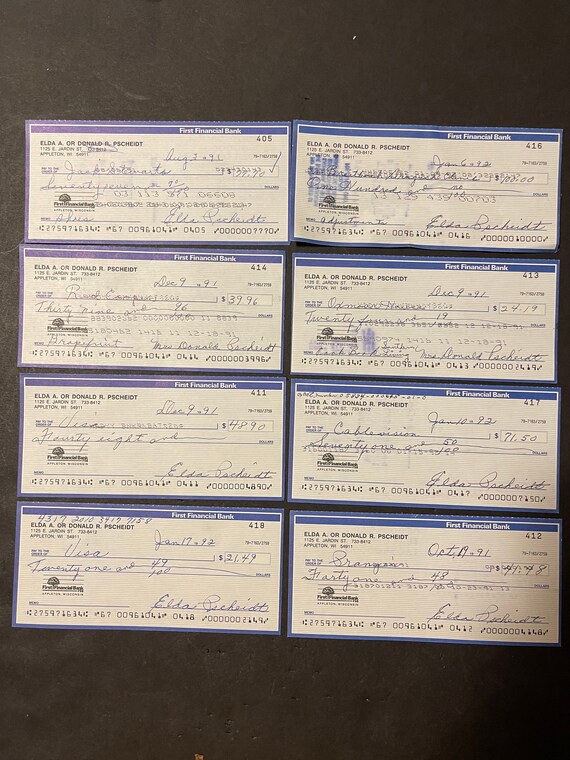 First Financial Bank
ELDA A. OR DONALD R. PSCHEIDT 405
1125 E. JARDIN ST. 733-8412
APPLETON, WI 54911 Aug 3 1991 79-7163/2759
PAY TO THE ORDER OF $ 77.70
Seventy seven and 70/100 DOLLARS
First Financial Bank
APPLETON, WISCONSIN
MEMO Shoes Elda Pscheidt
⑆275971634⑆ ⑈67 00961041⑈ 0405 ⑈0000007770⑈
First Financial Bank
ELDA A. OR DONALD R. PSCHEIDT 416
1125 E. JARDIN ST. 733-8412
APPLETON, WI 54911 Jan 6 1992 79-7163/2759
PAY TO THE ORDER OF $ 100.00
One Hundred and no/100 DOLLARS
First Financial Bank
APPLETON, WISCONSIN
MEMO Elda Pscheidt
⑆275971634⑆ ⑈67 00961041⑈ 0416 ⑈0000010000⑈
First Financial Bank
ELDA A. OR DONALD R. PSCHEIDT 414
1125 E. JARDIN ST. 733-8412
APPLETON, WI 54911 Dec 9 1991 79-7163/2759
PAY TO THE ORDER OF $ 39.96
Thirty nine and 96 DOLLARS
First Financial Bank
APPLETON, WISCONSIN
MEMO Grapefruit Mrs Donald Pscheidt
⑆275971634⑆ ⑈67 00961041⑈ 0414 ⑈0000003996⑈
First Financial Bank
ELDA A. OR DONALD R. PSCHEIDT 413
1125 E. JARDIN ST. 733-8412
APPLETON, WI 54911 Dec 9 1991 79-7163/2759
PAY TO THE ORDER OF $ 24.19
Twenty four and 19 DOLLARS
First Financial Bank
APPLETON, WISCONSIN
MEMO Mrs Donald Pscheidt
⑆275971634⑆ ⑈67 00961041⑈ 0413 ⑈0000002419⑈
First Financial Bank
ELDA A. OR DONALD R. PSCHEIDT 411
1125 E. JARDIN ST. 733-8412
APPLETON, WI 54911 Dec 9 1991 79-7163/2759
PAY TO THE ORDER OF Visa $ 48.90
Fourty eight and DOLLARS
First Financial Bank
APPLETON, WISCONSIN
MEMO Elda Pscheidt
⑆275971634⑆ ⑈67 00961041⑈ 0411 ⑈0000004890⑈
First Financial Bank
ELDA A. OR DONALD R. PSCHEIDT 417
1125 E. JARDIN ST. 733-8412
APPLETON, WI 54911 Jan 10 1992 79-7163/2759
PAY TO THE ORDER OF Cablevision $ 71.50
Seventy one and 50/100 DOLLARS
First Financial Bank
APPLETON, WISCONSIN
MEMO Elda Pscheidt
⑆275971634⑆ ⑈67 00961041⑈ 0417 ⑈0000007150⑈
First Financial Bank
4317 2010 3917 7158
ELDA A. OR DONALD R. PSCHEIDT 418
1125 E. JARDIN ST. 733-8412
APPLETON, WI 54911 Jan 17 1992 79-7163/2759
PAY TO THE ORDER OF Visa $ 21.49
Twenty one and 49/100 DOLLARS
First Financial Bank
APPLETON, WISCONSIN
MEMO Elda Pscheidt
⑆275971634⑆ ⑈67 00961041⑈ 0418 ⑈0000002149⑈
First Financial Bank
ELDA A. OR DONALD R. PSCHEIDT 412
1125 E. JARDIN ST. 733-8412
APPLETON, WI 54911 Oct 1991 79-7163/2759
PAY TO THE ORDER OF $ 41.48
Fourty one and 48 DOLLARS
First Financial Bank
APPLETON, WISCONSIN
MEMO Elda Pscheidt
⑆275971634⑆ ⑈67 00961041⑈ 0412 ⑈0000004148⑈